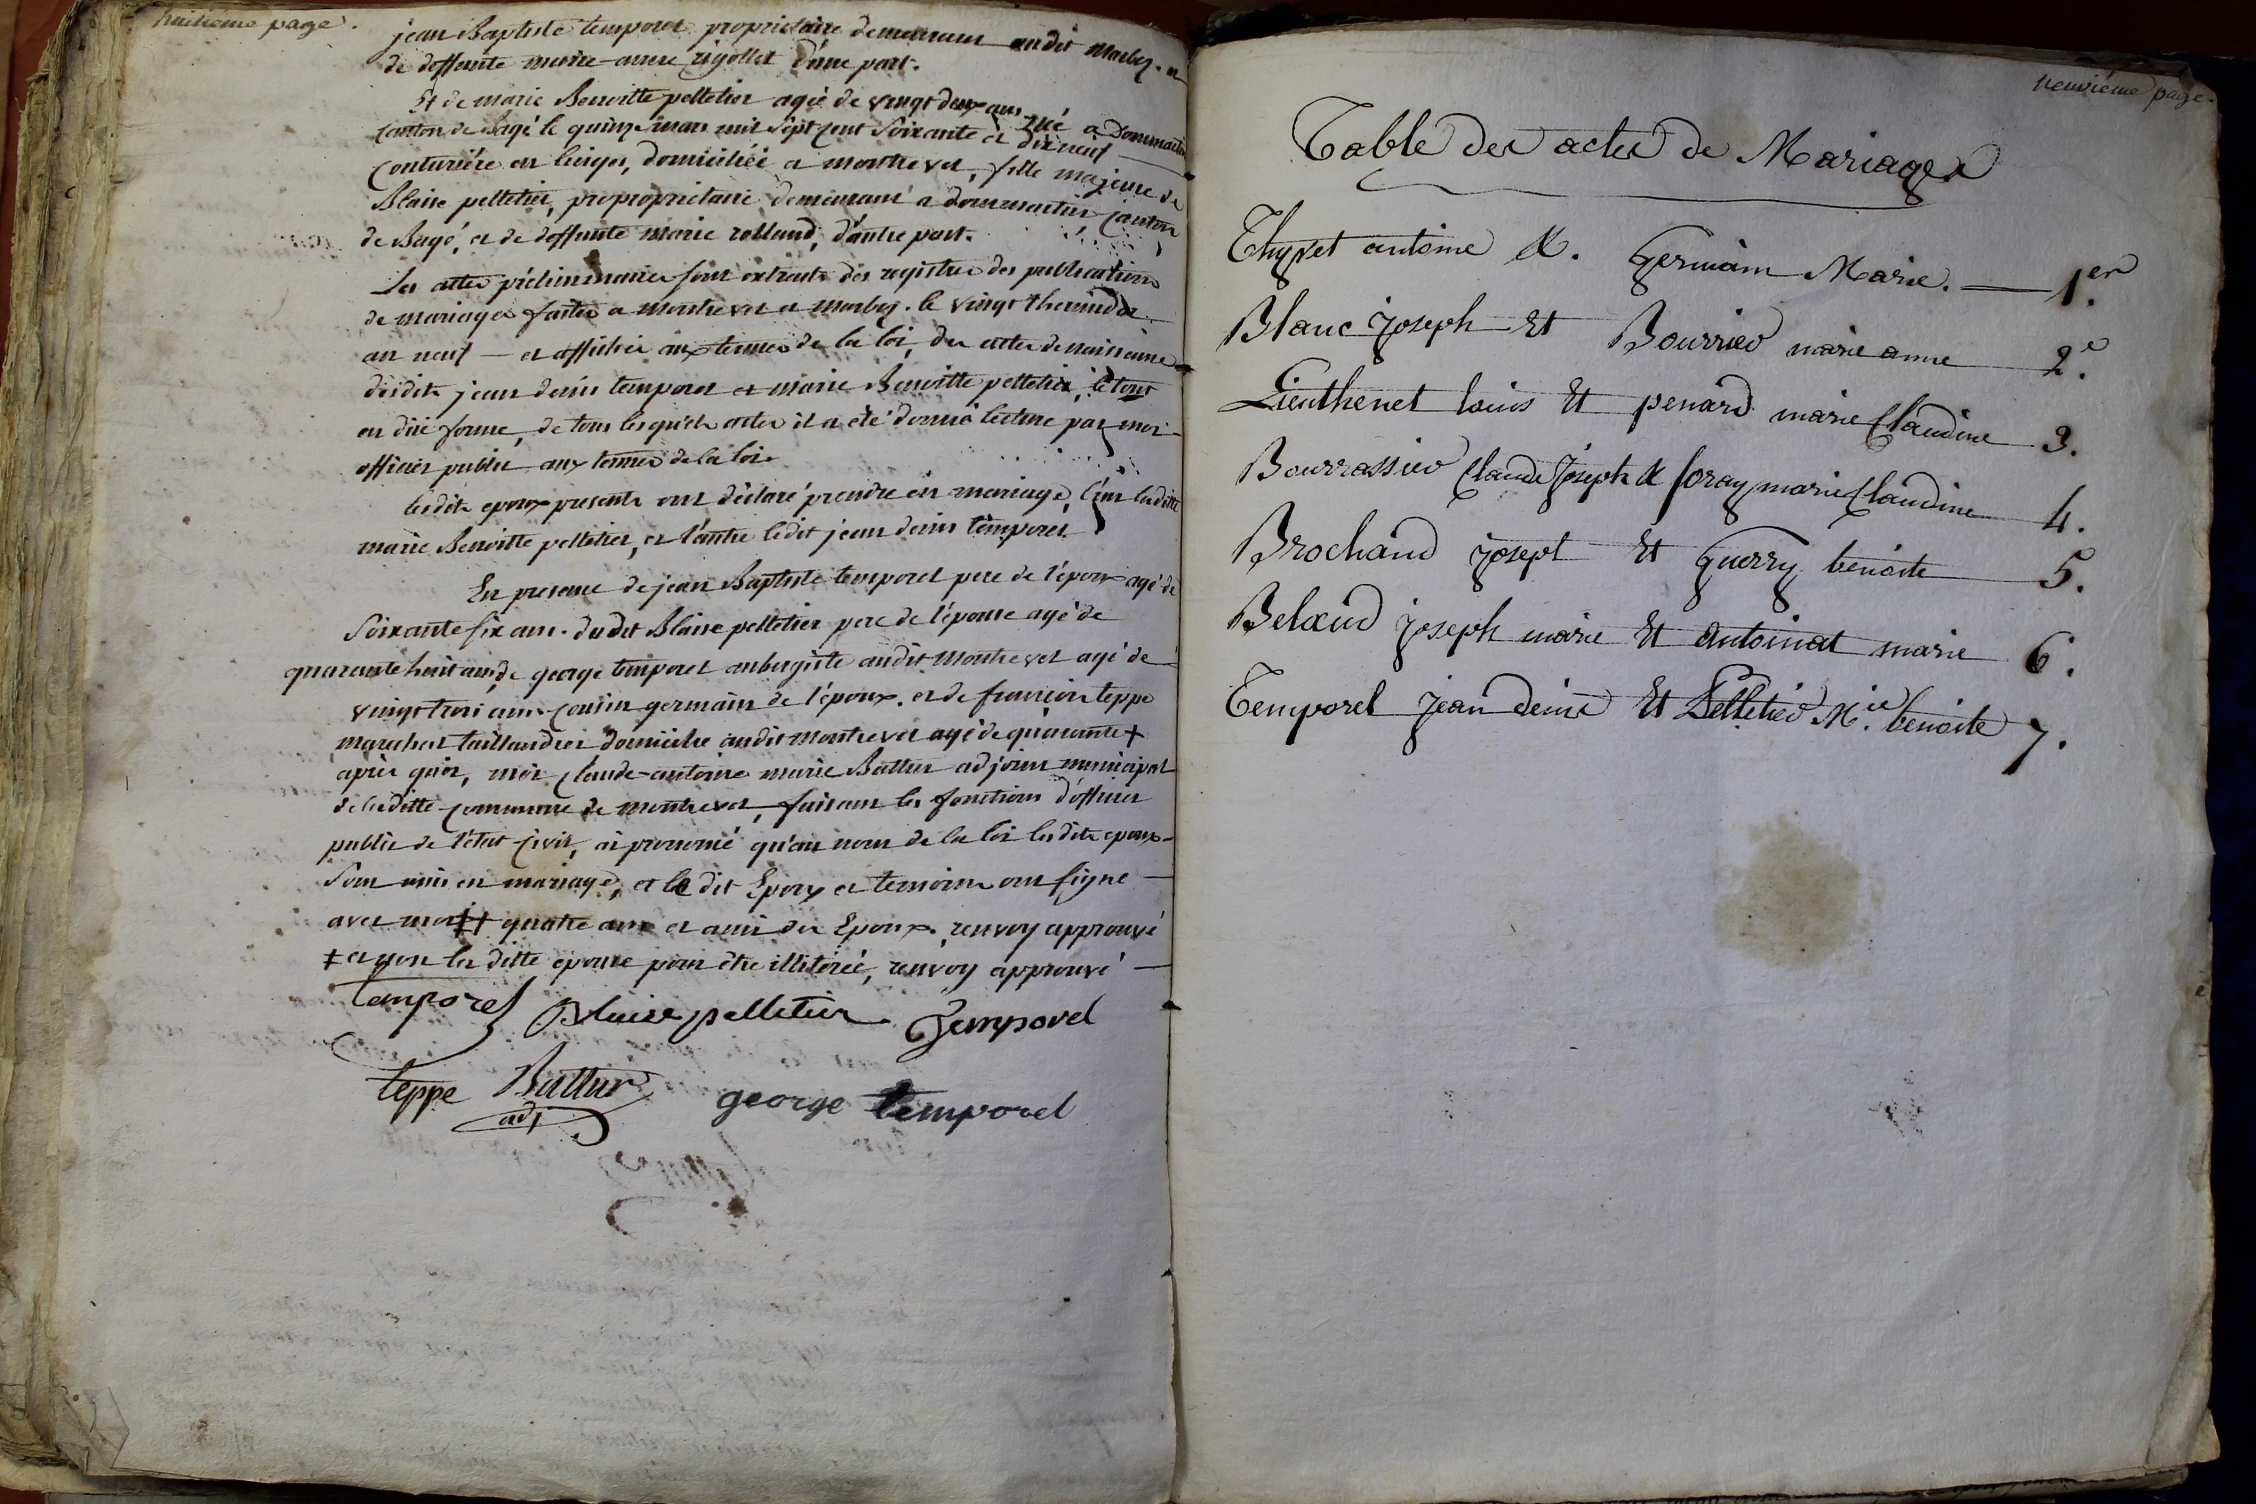 huitième page.
jean Baptiste temporel proprietaire demeurant au dit Marboz. et
de deffunte marie anne rigollet d'une part.
Et de marie Benoitte pelletier agée de vingt deux ans née a Dommartin
Canton de Bagé le quinze mars mil sept cent soixante et dix neuf
Couturière en linges, domiciliée a montrevel, fille majeure de
Blaise pelletier, propropriétaire demeurant a dommartin, Canton
de Bagé, et de deffunte marie rolland, d'autre part.
Les actes préliminaires sont extraits des registres des publications
de mariages faites a montrevel et marboz. le vingt thermidor
an neuf — et affichés aux termes de la loi, des actes de naissance
desdits jean denis temporel et marie Benoitte pelletier, le tout
en düe forme, de tous lesquels actes il a été donné lecture par moi
officier public aux termes de la loi.
lesdits epoux presents ont déclaré prendre en mariage, l'un laditte
marie Benoitte pelletier, et l'autre ledit jean denis temporel
En presence de jean Baptiste temporel pere de l'époux agé de
soixante six ans. dudit Blaise pelletier pere de l'épouse agé de
quarante huit ans, de george temporel aubergiste audit Montrevel agé de
vingt trois ans cousin germain de l'époux. et de francois teppe
marechal taillandier domicilié audit Montrevel agé de quarante +
après quoi, moi Claude-antoine marie Buttur adjoint municipal
de laditte Commune de montrevel, faisant les fonctions d'officier
public de l'état Civil, ai prononcé qu'au nom de la loi lesdits epoux
sont unis en mariage, et le dit Epoux et temoins ont signé
avec moi ++ quatre ans et amis des Epoux. renvoy approuvé
‡ et non la ditte epouse pour être illitérée, renvoy approuvé
temporel Blaise pelletier Temporel
teppe Buttur george temporel
adj
neuvième page.
Table des actes de Mariages
Thyvet antoine &. Germain Marie. — 1.er
Blanc joseph Et Bourrier marie anne 2.e
Lieuthenet louis Et penard marie Claudine 3.
Bourrassier Claude Joseph & foray marie Claudine 4.
Brochand joseph Et Guerry benoite 5.
Belaud joseph marie Et Antoinat marie 6.
Temporel jean denis Et Pelletier M.ie benoite 7.